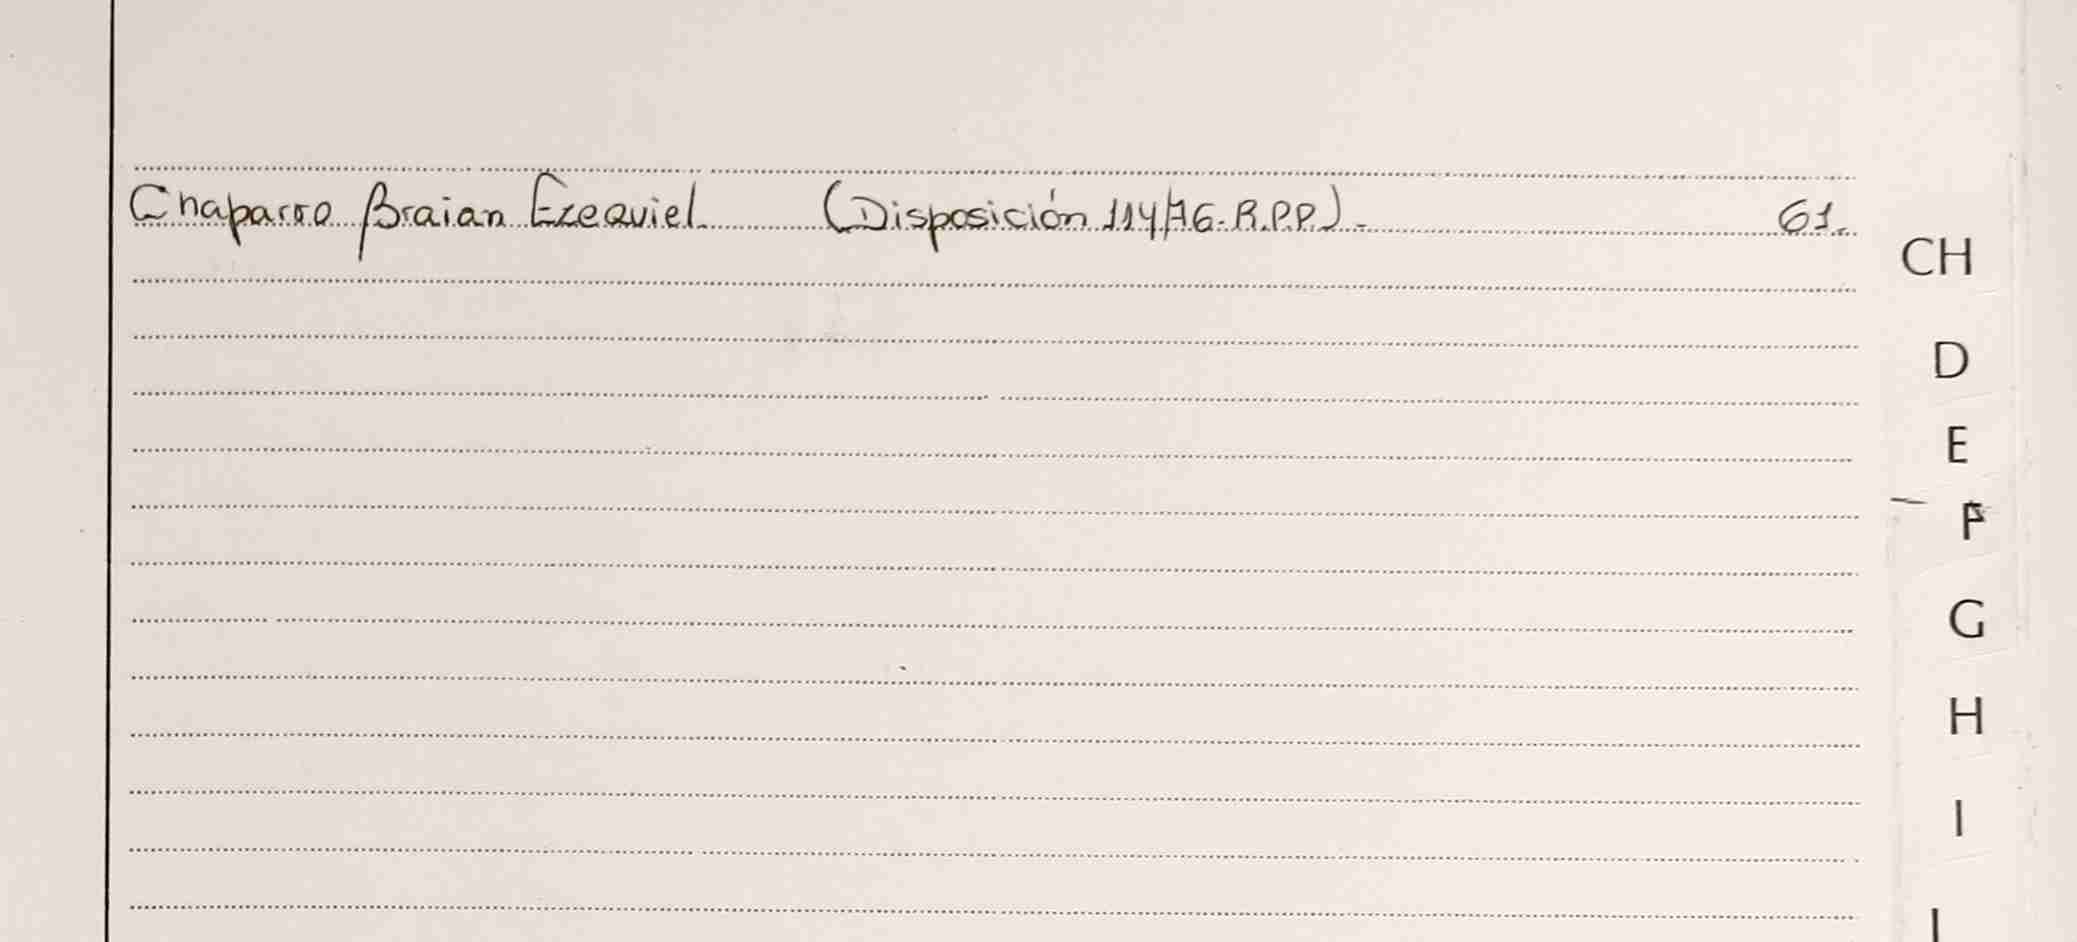 Chaparro Braian Ezequiel (Disposición 114/16-R.P.P.).- 61.-
CH
D
E
F
G
H
I